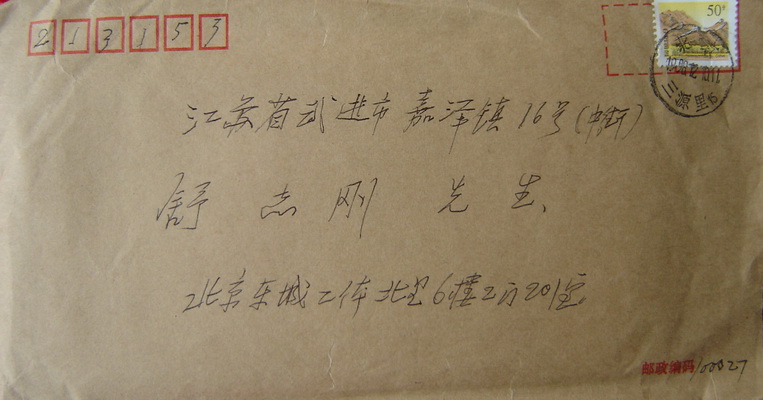 213153
50分
三源里
江苏省武进市嘉泽镇16号(中街)
舒志刚先生
北京东城工体北里6楼2门201室
邮政编码100027